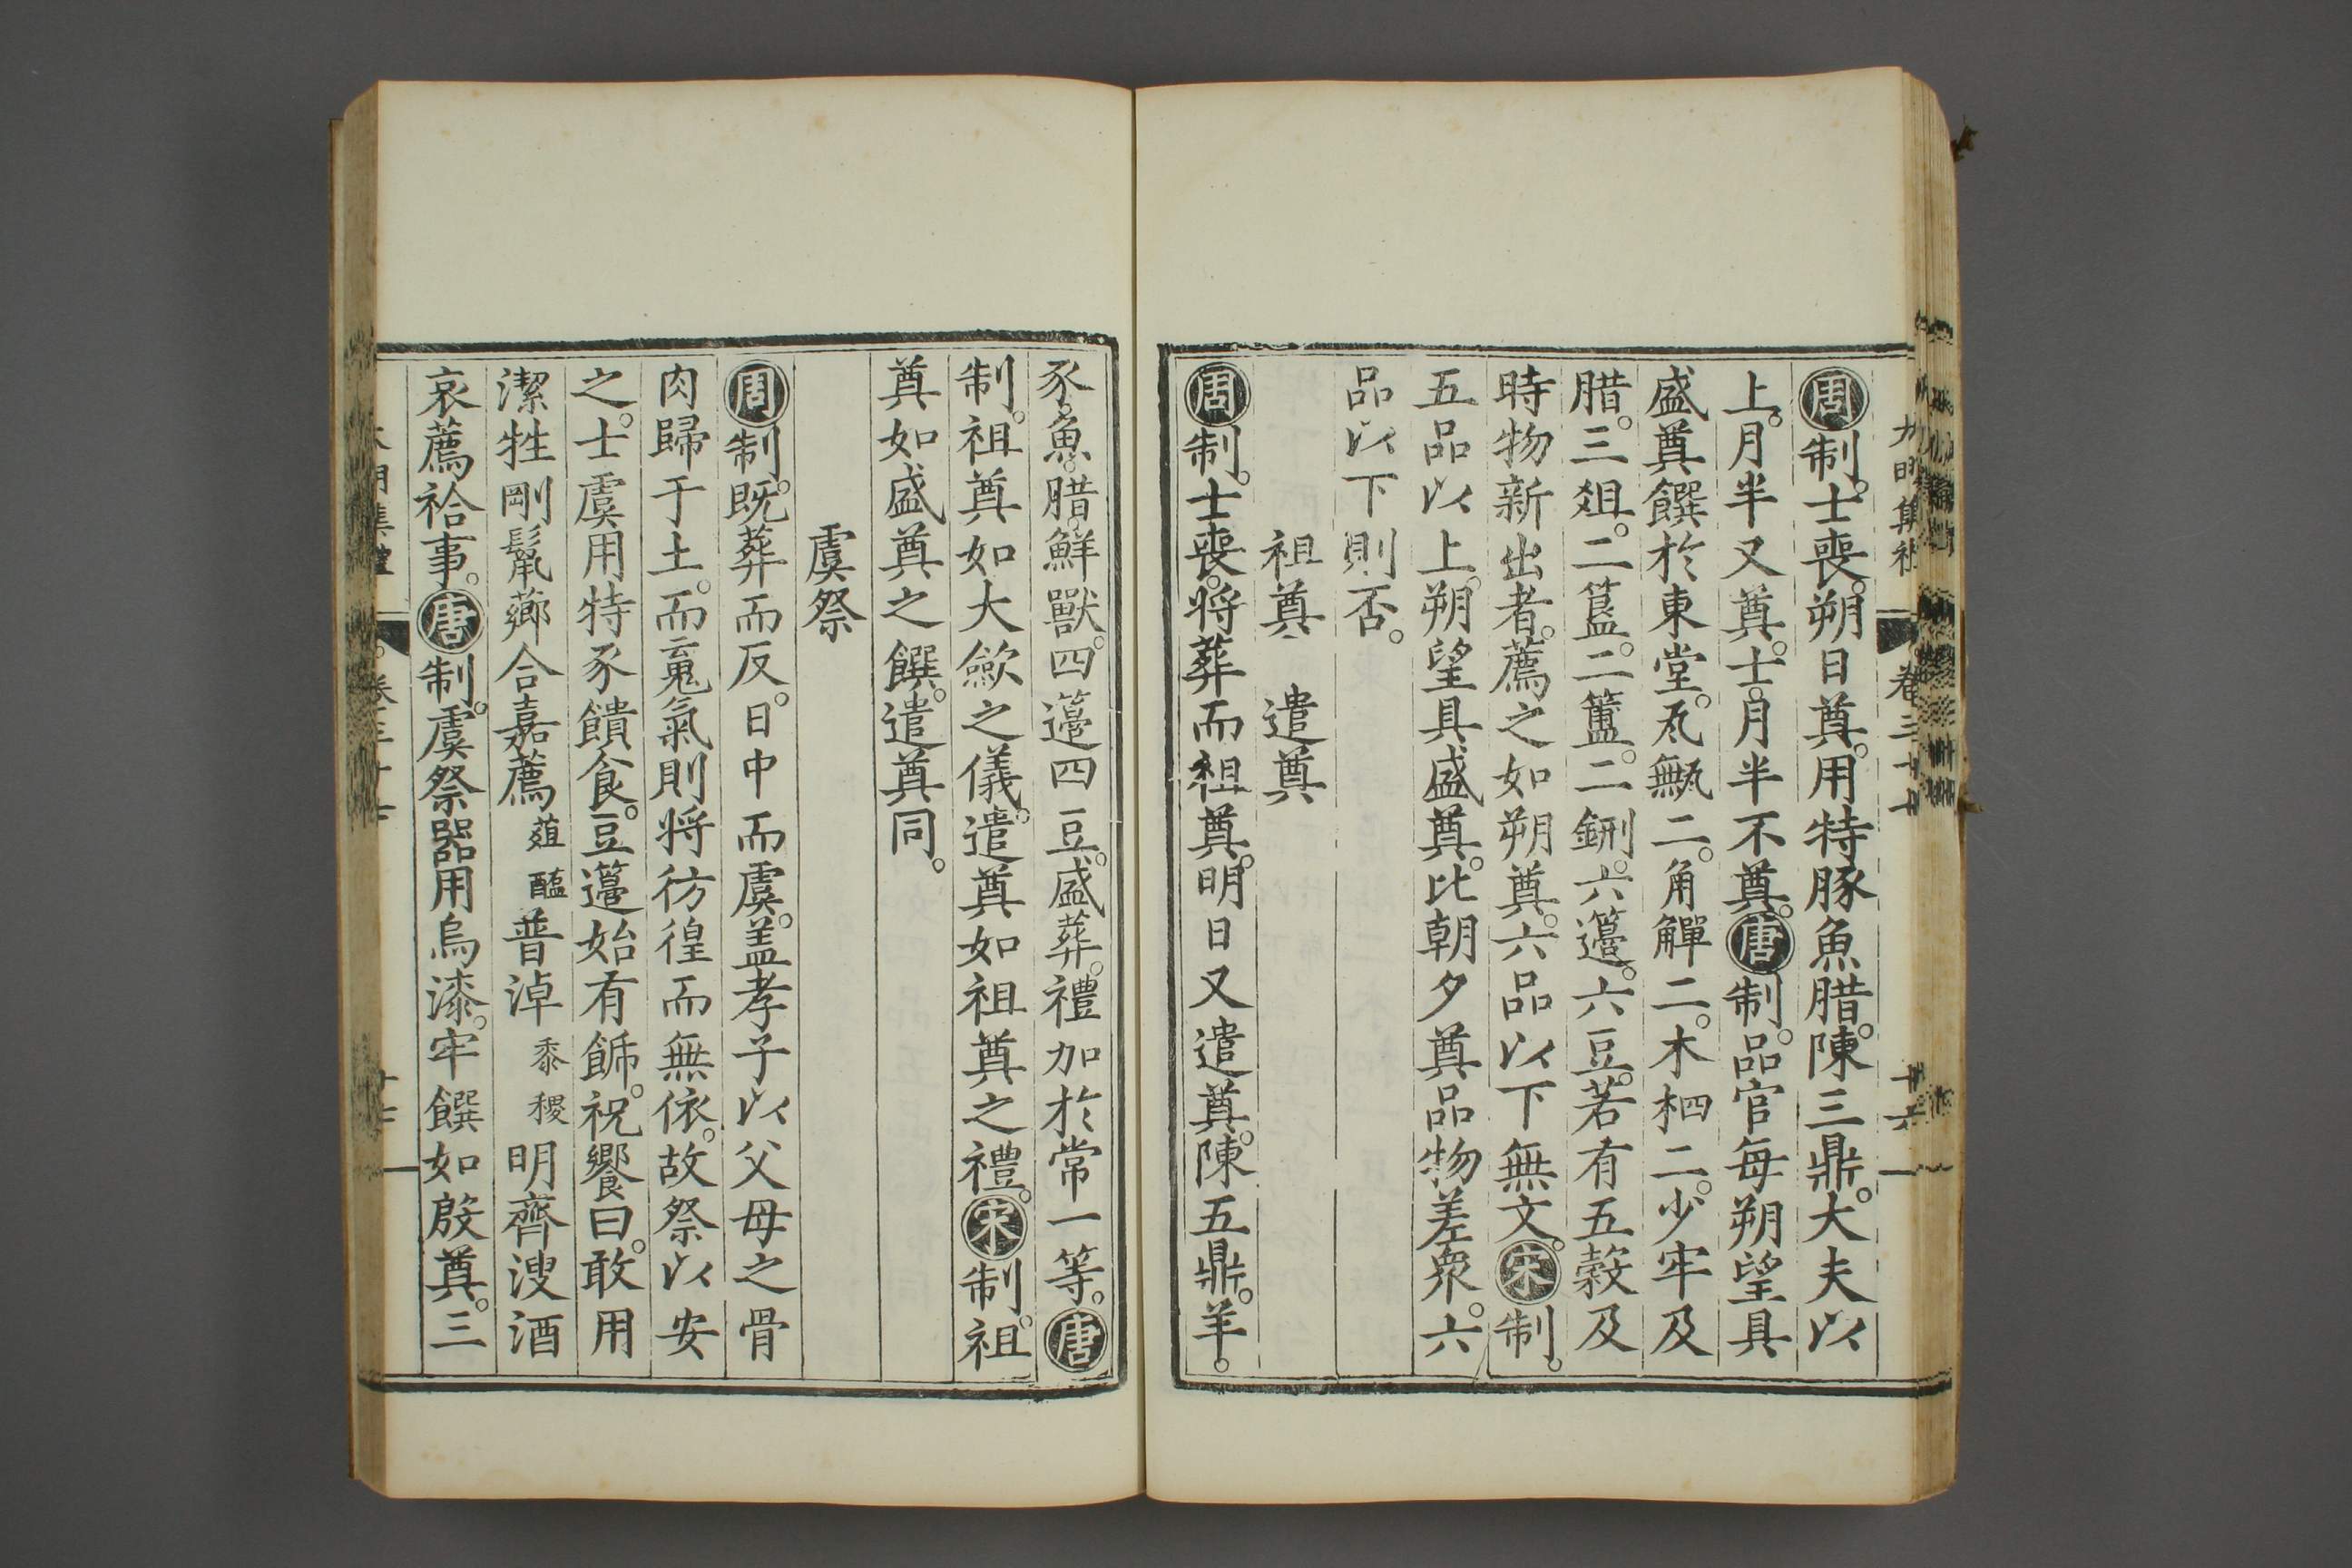 周制。士喪。朔日奠。用特豚魚腊。陳三鼎。大夫以
上。月半又奠。士。月半不奠。唐制。品官每朔望具
盛奠饌於東堂。瓦甒二。角觶二。木柶二。少牢及
腊。三俎。二簋。二簠。二鉶。六籩。六豆。若有五穀及
時物新出者。薦之如朔奠。六品以下無文。宋制。
五品以上。朔望具盛奠。比朝夕奠品物差衆。六
品以下則否。
祖奠　遣奠
周制。士喪。將葬而祖奠。明日又遣奠。陳五鼎。羊。
豕。魚。腊。鮮獸。四籩四豆。盛葬。禮加於常一等。唐
制。祖奠如大歛之儀。遣奠如祖奠之禮。宋制。祖
奠如盛奠之饌。遣奠同。
虞祭
周制。既葬而反。日中而虞。盖孝子以父母之骨
肉歸于土。而䰟氣則將彷徨而無依。故祭以安
之。士虞用特豕饋食。豆籩始有餙。祝饗曰。敢用
潔牲剛鬣薌合嘉薦菹醢普淖黍稷明齊溲酒
哀薦祫事。唐制。虞祭器用烏漆。牢饌如殷奠。三